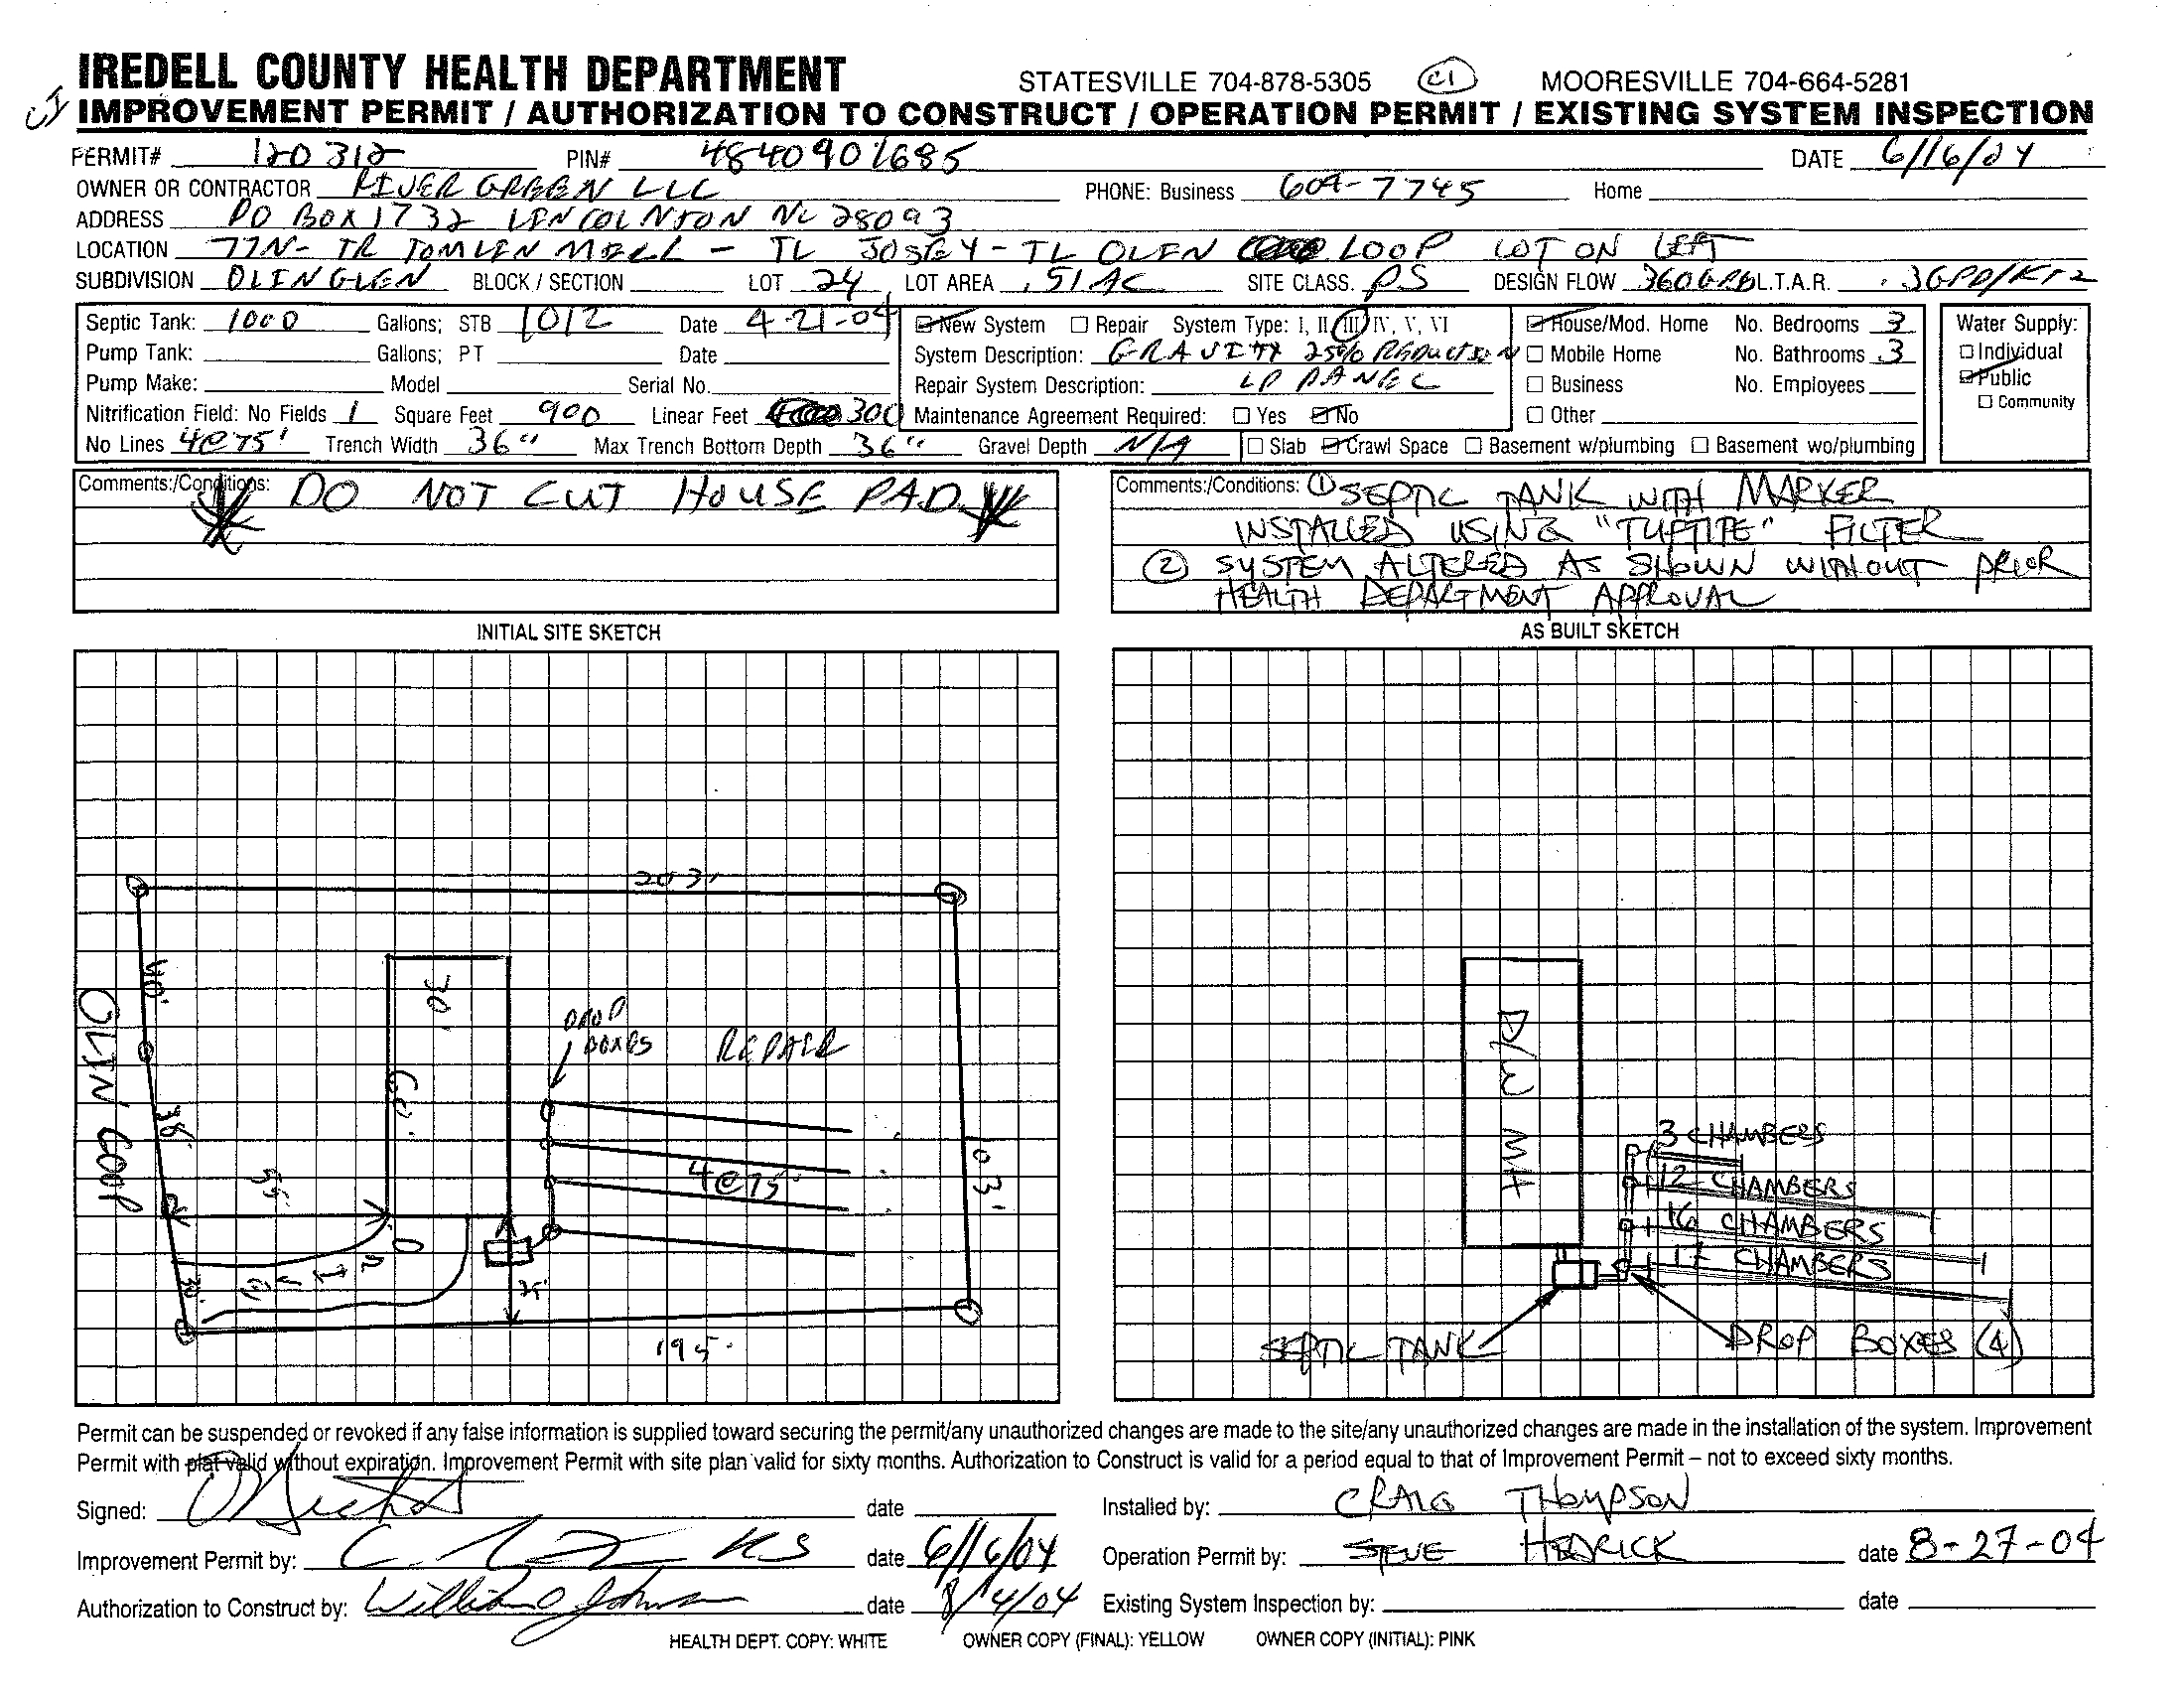 IREDELL COUNTY HEALTH DEPARTMENT STATESVILLE 704-878-5305 C1 MOORESVILLE 704-664-5281
CI IMPROVEMENT PERMIT / AUTHORIZATION TO CONSTRUCT / OPERATION PERMIT / EXISTING SYSTEM INSPECTION
PERMIT# 120312 PIN# 4840901685 DATE 6/16/04
OWNER OR CONTRACTOR RIVER GREEN LLC PHONE: Business 609-7745 Home
ADDRESS PO BOX 1732 LINCOLNTON NC 28093
LOCATION 77N- TR TOMLIN MILL - TL JOSEY - TL OLIN LOOP LOT ON LEFT
SUBDIVISION OLIN GLEN BLOCK / SECTION LOT 24 LOT AREA .51AC SITE CLASS. PS DESIGN FLOW 360GPD L.T.A.R. .3GPD/FT2
Septic Tank: 1000 Gallons; STB 1012 Date 4-21-04
Pump Tank: Gallons; PT Date
Pump Make: Model Serial No.
Nitrification Field: No Fields 1 Square Feet 900 Linear Feet 300
No Lines 4@75' Trench Width 36" Max Trench Bottom Depth 36" Gravel Depth N/A
New System Repair System Type: I, II, III, IV, V, VI
System Description: GRAVITY 25% REDUCTION
Repair System Description: LP PANEL
Maintenance Agreement Required: Yes No
House/Mod. Home No. Bedrooms 3
Mobile Home No. Bathrooms 3
Business No. Employees
Other
Slab Crawl Space Basement w/plumbing Basement wo/plumbing
Water Supply:
Individual
Public
Community
Comments:/Conditions: DO NOT CUT HOUSE PAD
Comments:/Conditions: ① SEPTIC TANK WITH MARKER
INSTALLED USING "TUFTITE" FILTER
② SYSTEM ALTERED AS SHOWN WITHOUT PRIOR
HEALTH DEPARTMENT APPROVAL
INITIAL SITE SKETCH
203'
40'
OLIN LOOP
30'
60'
DROP
BOXES
REPAIR
38'
55'
4@75'
103'
30'
25'
195'
AS BUILT SKETCH
D/W MH
3 CHAMBERS
12 CHAMBERS
16 CHAMBERS
17 CHAMBERS
SEPTIC TANK
DROP BOXES (4)
Permit can be suspended or revoked if any false information is supplied toward securing the permit/any unauthorized changes are made to the site/any unauthorized changes are made in the installation of the system. Improvement
Permit with plat valid without expiration. Improvement Permit with site plan valid for sixty months. Authorization to Construct is valid for a period equal to that of Improvement Permit – not to exceed sixty months.
Signed: date
Improvement Permit by: RS date 6/16/04
Authorization to Construct by: William Johnson date 8/4/04
Installed by: CRAIG THOMPSON
Operation Permit by: STEVE HEDRICK date 8-27-04
Existing System Inspection by: date
HEALTH DEPT. COPY: WHITE OWNER COPY (FINAL): YELLOW OWNER COPY (INITIAL): PINK